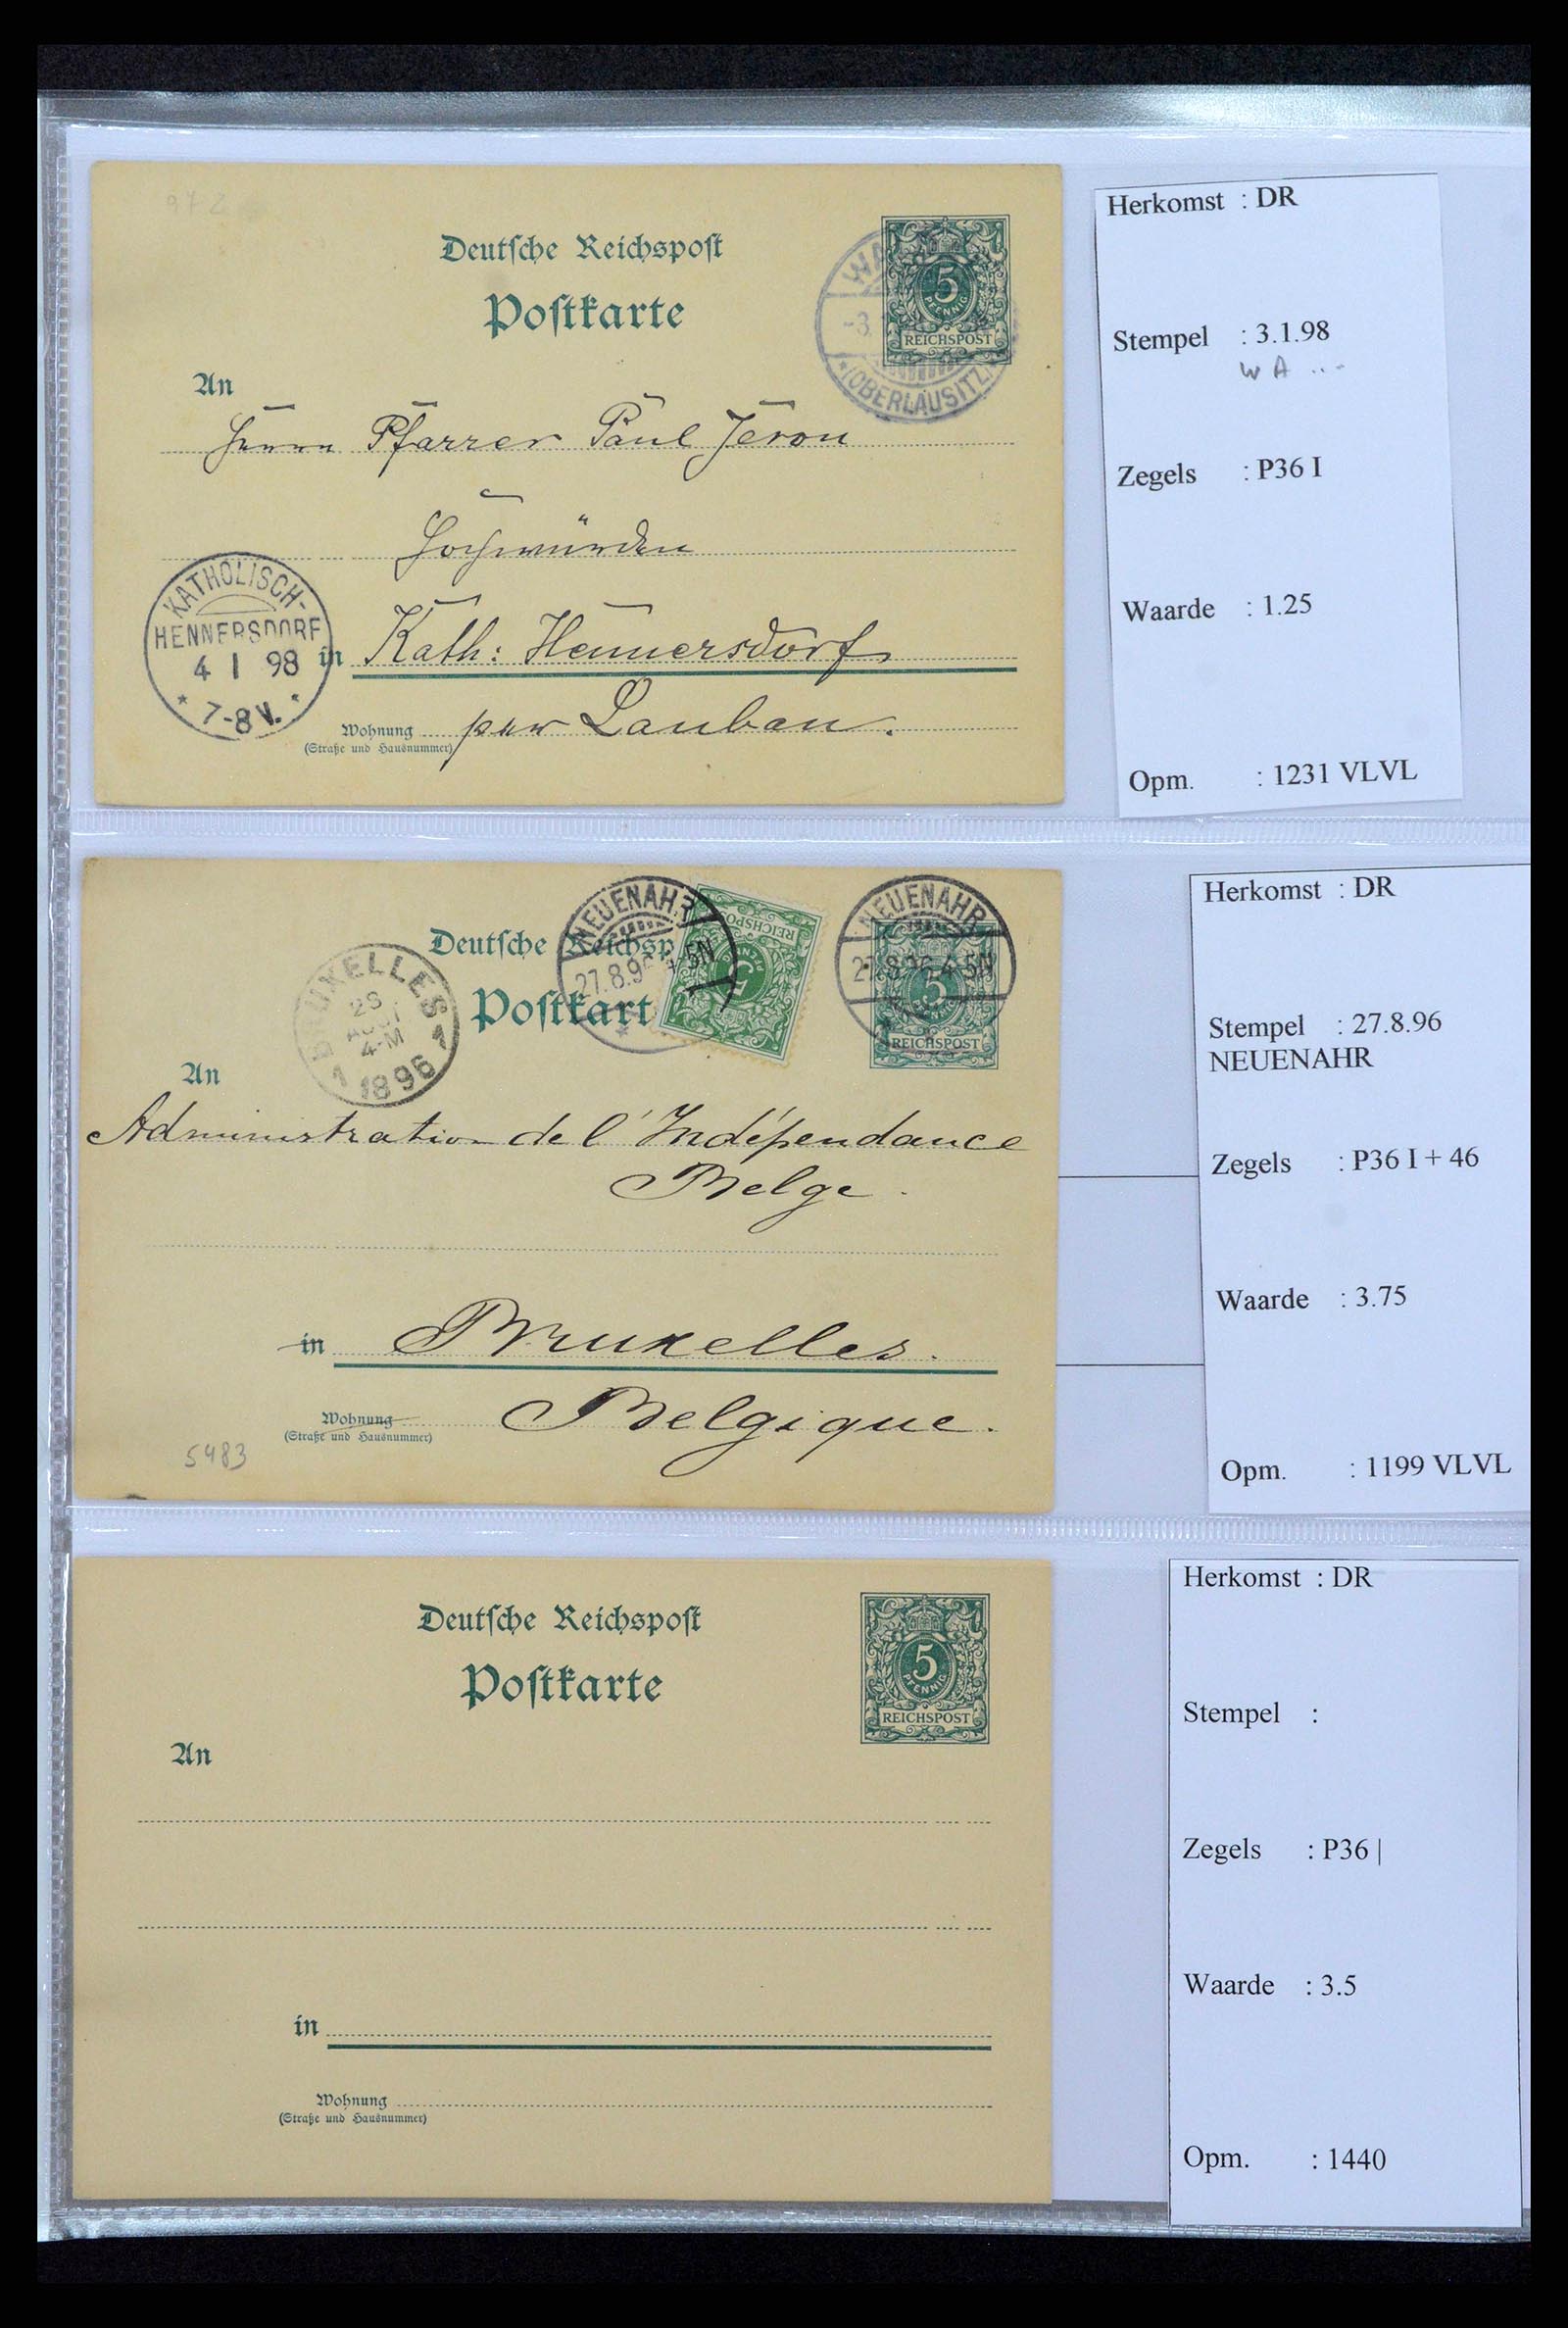 972
Deutsche Reichspost
Postkarte
5
PFENNIG
REICHSPOST
WA
-3.
*(OBERLAUSITZ)*
An
Herrn Pfarrer Paul Jeron
Hochwürden
KATHOLISCH-
HENNERSDORF
4 1 98
* 7-8 V. *
in Kath: Hennersdorf
Wohnung per Lauban.
(Straße und Hausnummer)
Herkomst : DR
Stempel : 3.1.98
WA ...
Zegels : P36 I
Waarde : 1.25
Opm. : 1231 VLVL
NEUENAHR
27.8.96 4-5N
REICHSPOST
PFENNIG
5
NEUENAHR
27.8.96 4-5N
5
REICHSPOST
Deutsche Reichsp
Postkart
BRUXELLES
28
AOUT
4-M
1 1896 1
An
Administration de l'Indépendance
Belge.
in Bruxelles.
Wohnung Belgique.
(Straße und Hausnummer)
5483
Herkomst : DR
Stempel : 27.8.96
NEUENAHR
Zegels : P36 I + 46
Waarde : 3.75
Opm. : 1199 VLVL
Deutsche Reichspost
Postkarte
5
PFENNIG
REICHSPOST
An
in
Wohnung
(Straße und Hausnummer)
Herkomst : DR
Stempel :
Zegels : P36 |
Waarde : 3.5
Opm. : 1440